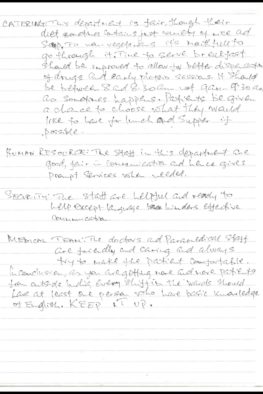 CATERING: This department is fair, though their
diet routine contains just variety of rice and
Soup. To non vegetarians it's hell to
go through it. Time to serve breakfast
should be improved to allow for better dispensation
of drugs and early physio sessions. It should
be between 8 and 8:30am not 9am 9:30am
as sometimes happens. Patients be given
a chance to choose what they would
like to have for lunch and supper if
possible.
HUMAN RESOURCE: The staff in this department are
good, fair in communication and hence gives
prompt services when needed.
SECURITY: The staff are helpful and ready to
help except language hinders effective
communication.
MEDICAL TEAM: The doctors and Paramedical staff
are friendly and caring and always
try to make the patient comfortable.
In conclusion, as you are getting more and more patients
from outside India every shift in the wards should
have at least one person who have basic knowledge
of English. KEEP IT UP.